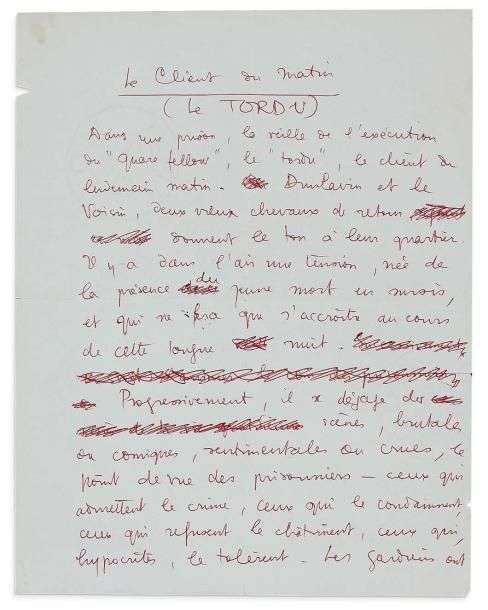 Le Client du Matin
(Le TORDU)
Dans une prison, la veille de l'exécution
du "quare fellow", le "tordu", le client du
lendemain matin. Dunlavin et le
Voisin, deux vieux chevaux de retour
donnent le ton à leur quartier.
Il y a dans l'air une tension, née de
la présence du jeune mort en sursis,
et qui ne fera que s'accroître au cours
de cette longue nuit.
Progressivement, il se dégage des
scènes, brutales
ou comiques, sentimentales ou crues, le
point de vue des prisonniers — ceux qui
admettent le crime, ceux qui le condamnent,
ceux qui refusent le châtiment, ceux qui,
hypocrites, le tolèrent. Les gardiens ont